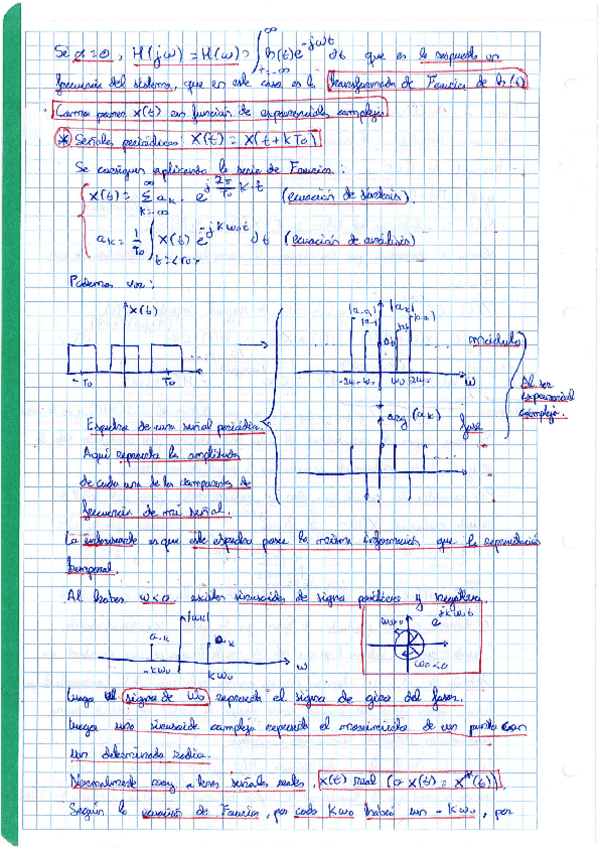 Si α = 0, H(jω) = H(ω) = ∫_{t=-∞}^{∞} h(t)e^{-jωt} dt que es la respuesta en
frecuencia del sistema, que en este caso es la transformada de Fourier de h(t)
Como poner x(t) en función de exponenciales complejas
* Señales periódicas: x(t) = x(t + kT₀)
Se consiguen aplicando la serie de Fourier:
x(t) = Σ_{k=-∞}^{∞} a_k · e^{j (2π/T₀) k t} (ecuación de síntesis)
a_k = 1/T₀ ∫_{t=<T₀>} x(t) e^{-jkω₀t} dt (ecuación de análisis)
Podemos ver:
x(t)
|a₋₂| |a₋₁| |a_k| a₀
- T₀ T₀ ...
-2ω₀ -ω₀ ω₀ 2ω₀ ω
módulo
Al ser exponencial compleja.
arg(a_k) fase
Espectro de una señal periódica.
Aquí representa la amplitud
de cada una de las componentes de
frecuencia de mi señal.
Lo interesante es que este espectro posee la misma información que la representación
temporal.
Al haber ω<0 existen sinusoides de signo positivo y negativo.
|a_k|
a₋k a_k
-kω₀ kω₀ ω
ω₀>0 e^{jkω₀t}
ω₀<0
Luego el signo de ω₀ representa el signo de giro del fasor.
Luego una sinusoide compleja representa el movimiento de un punto con
un determinado radio.
Normalmente voy a tener señales reales, x(t) real (o x(t) = x*(t))
Según la ecuación de Fourier, por cada kω₀ habrá un -kω₀, por